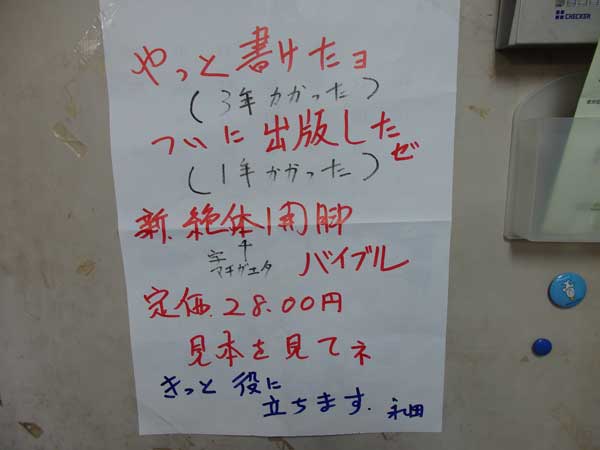 やっと書けたヨ
(3年かかった)
ついに出版したゼ
(1年かかった)
新.絶体開脚
↑
字マチガエタ
バイブル
定価.28.00円
見本を見てネ
きっと役に
立ちます. 永田
CHECKER